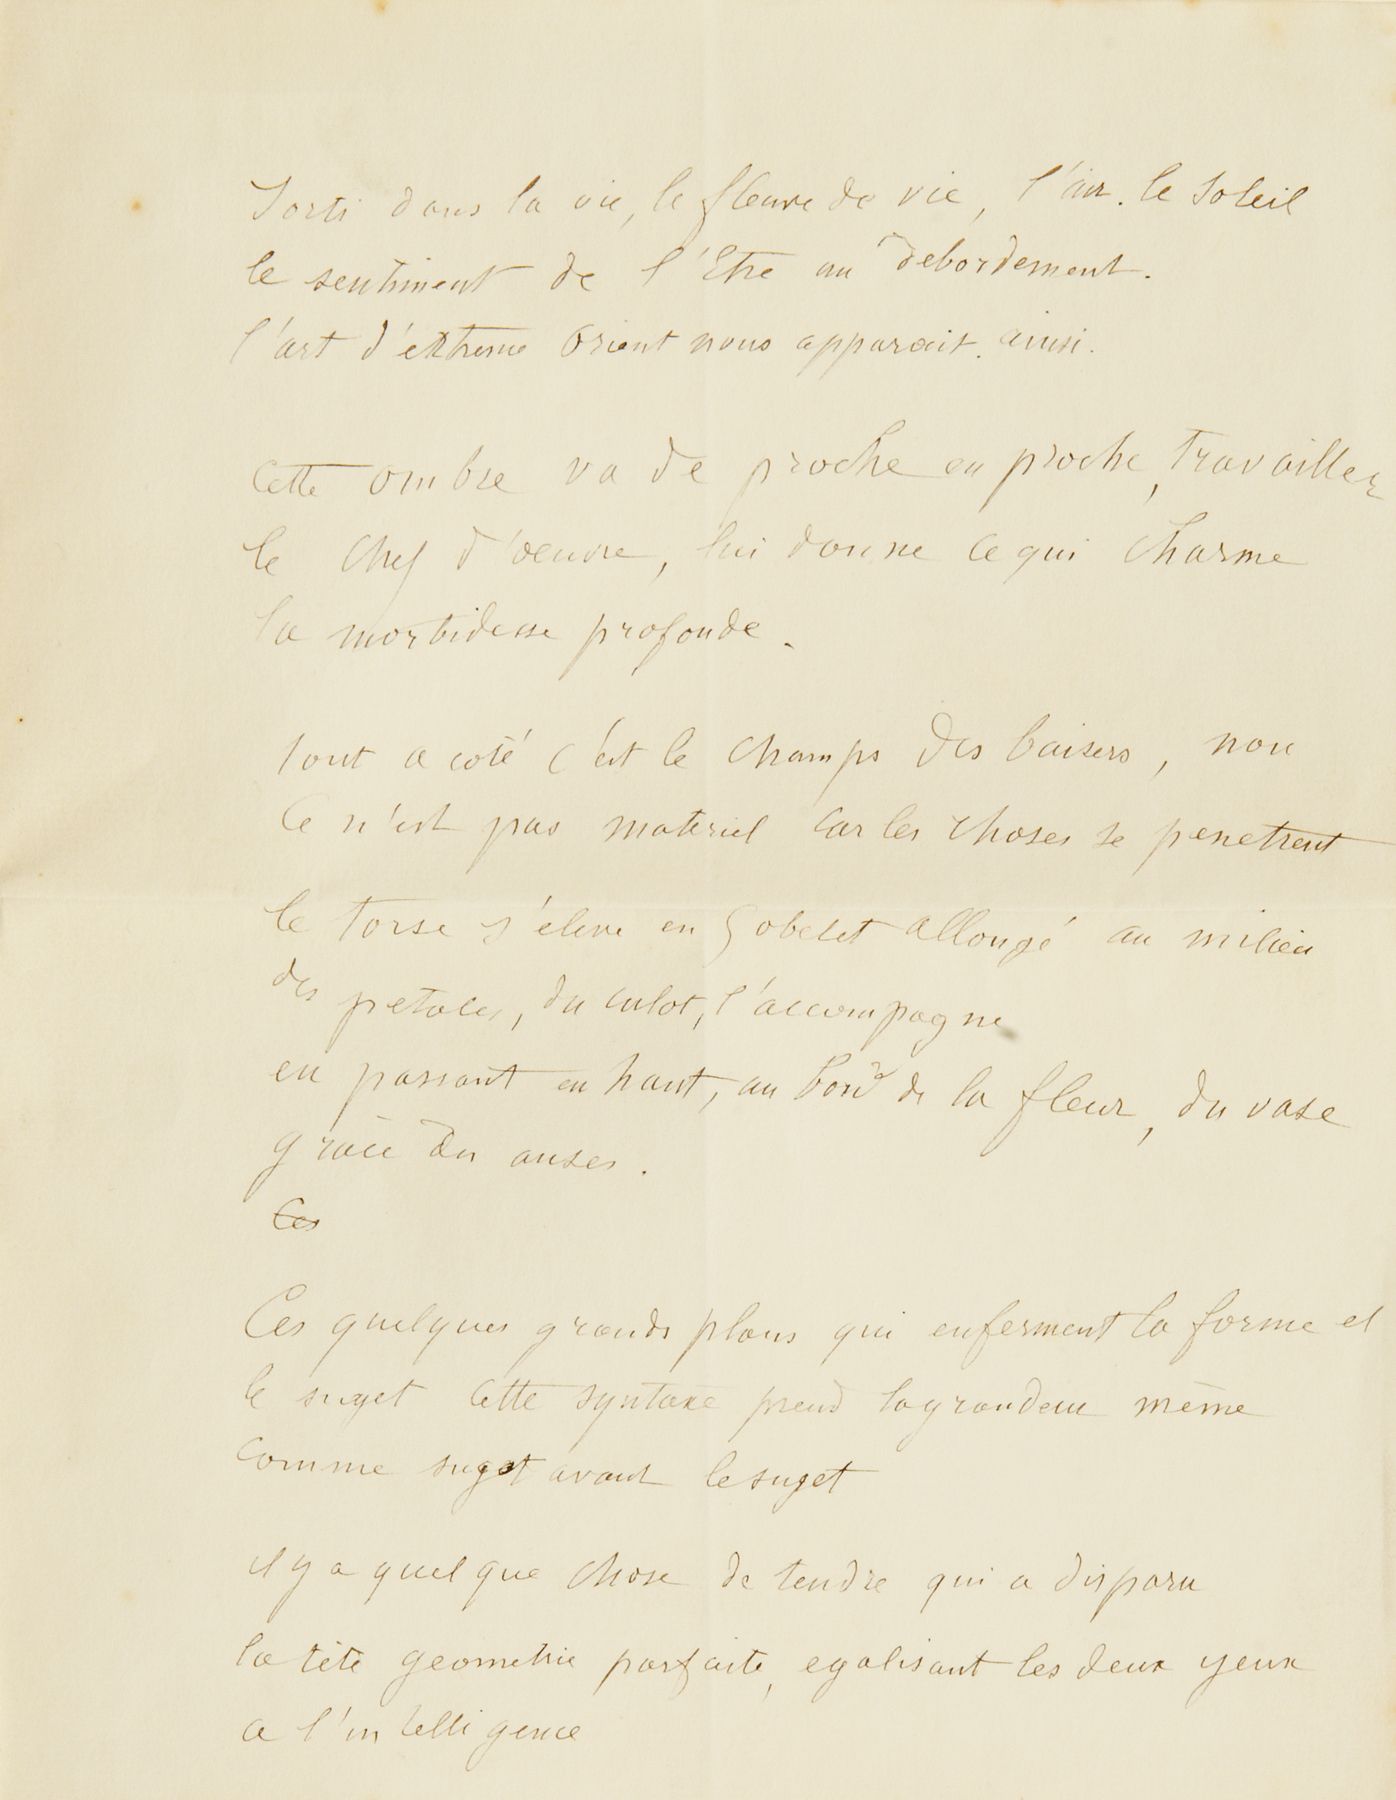 Sorti dans la vie, le fleuve de vie, l'air. le Soleil
le sentiment de l'Etre au debordement.
l'art d'extreme Orient nous apparait. ainsi.
Cette ombre va de proche en proche, travailler
le Chef d'oeuvre, lui donne ce qui charme
la morbidesse profonde.
tout a coté c'est le champs des baisers, non
Ce n'est pas materiel car les choses se penetrent
le torse s'eleve en Gobelet allongé au milieu
des petales, du culot, l'accompagne
en passant en haut, au bord de la fleur, du vase
grace des anses.
Ces
Ces quelques grands plans qui enferment la forme et
le suget cette syntaxe prend la grandeur même
comme suget avant le suget
il y a quelque chose de tendre qui a disparu
la tête geometrie parfaite, egalisant les deux yeux
a l'intelligence